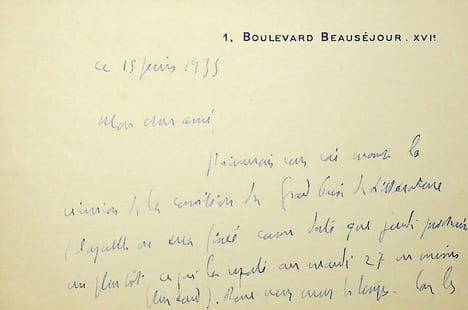 1, BOULEVARD BEAUSÉJOUR. XVIᵉ
ce 15 juin 1935
Mon cher ami,
J'aimerais vous voir avant la
réunion de la commission du Grand Prix de Littérature
(laquelle ne sera fixée sans doute que jeudi prochain
au plus tôt ce qui la reporte au mardi 27 au moins
plus tard). Donc nous avons le temps. Car les